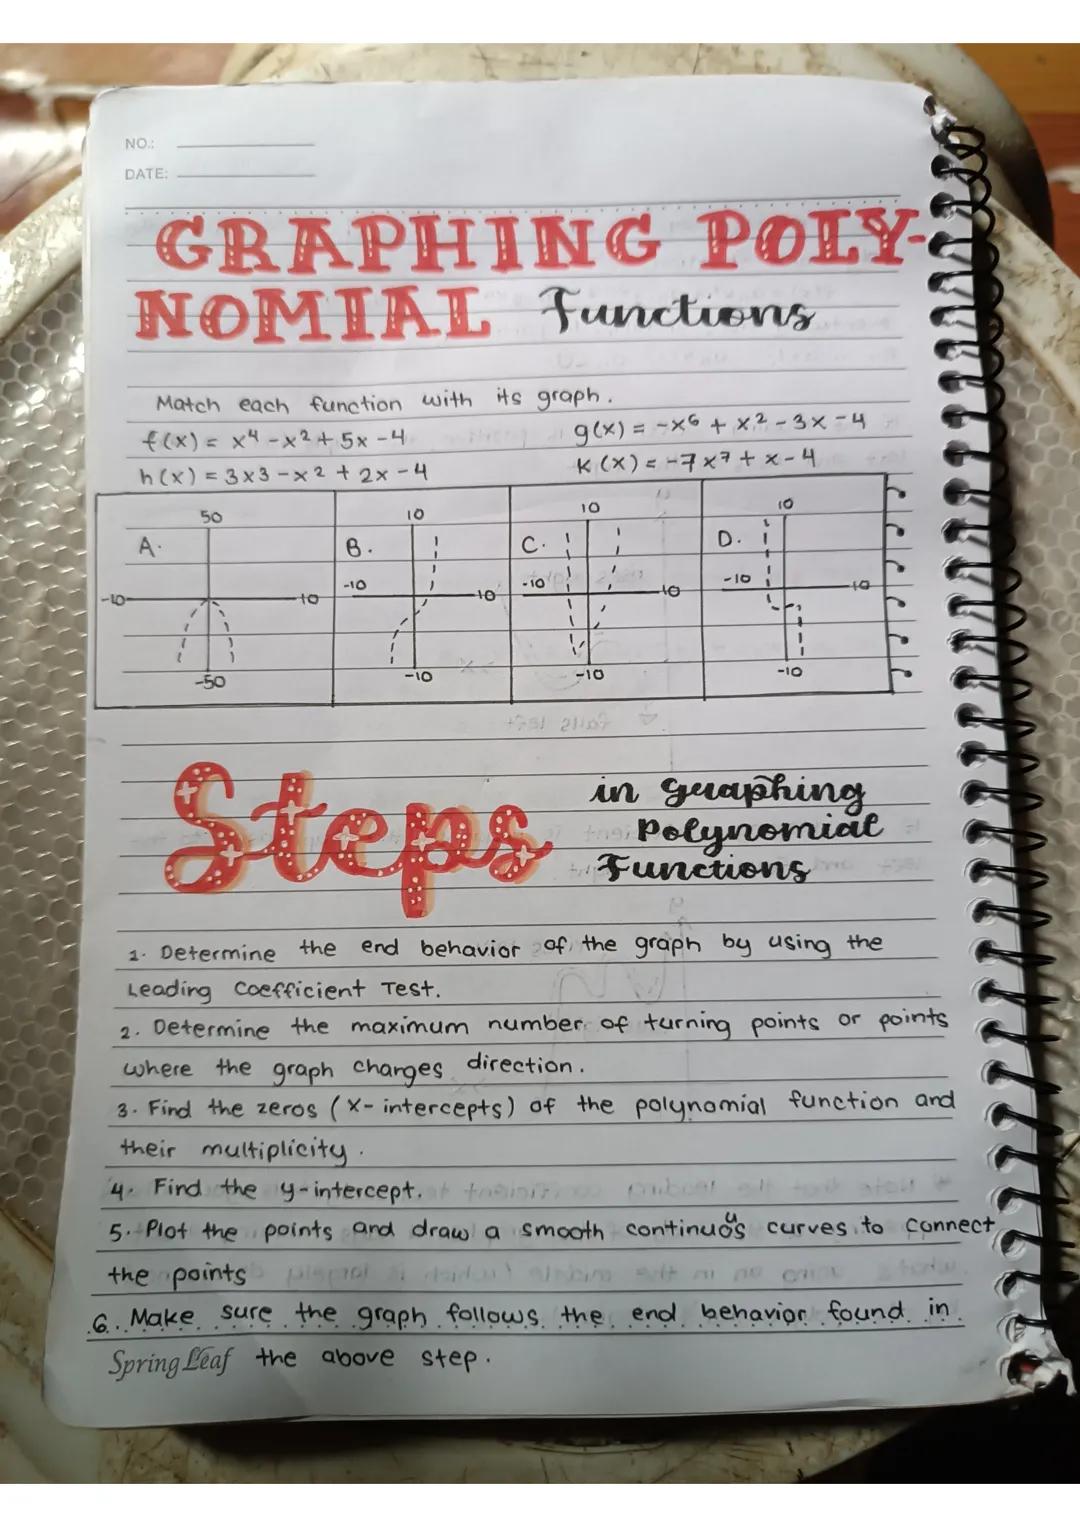 NO.:
DATE:
GRAPHING POLY-
NOMIAL Functions
Match each function with its graph.
f(x) = x⁴ - x² + 5x - 4
g(x) = -x⁶ + x² - 3x - 4
h(x) = 3x3 - x² + 2x - 4
K(x) = -7x⁷ + x - 4
A.
50
-10
10
-50
B.
10
-10
10
-10
C.
10
-10
10
-10
D.
10
-10
10
-10
Steps in graphing
Polynomial
Functions
1. Determine the end behavior of the graph by using the
Leading Coefficient Test.
2. Determine the maximum number of turning points or points
where the graph changes direction.
3. Find the zeros (x-intercepts) of the polynomial function and
their multiplicity.
4. Find the y-intercept.
5. Plot the points and draw a smooth continuous curves to connect
the points
6. Make sure the graph follows the end behavior found in
Spring Leaf the above step.